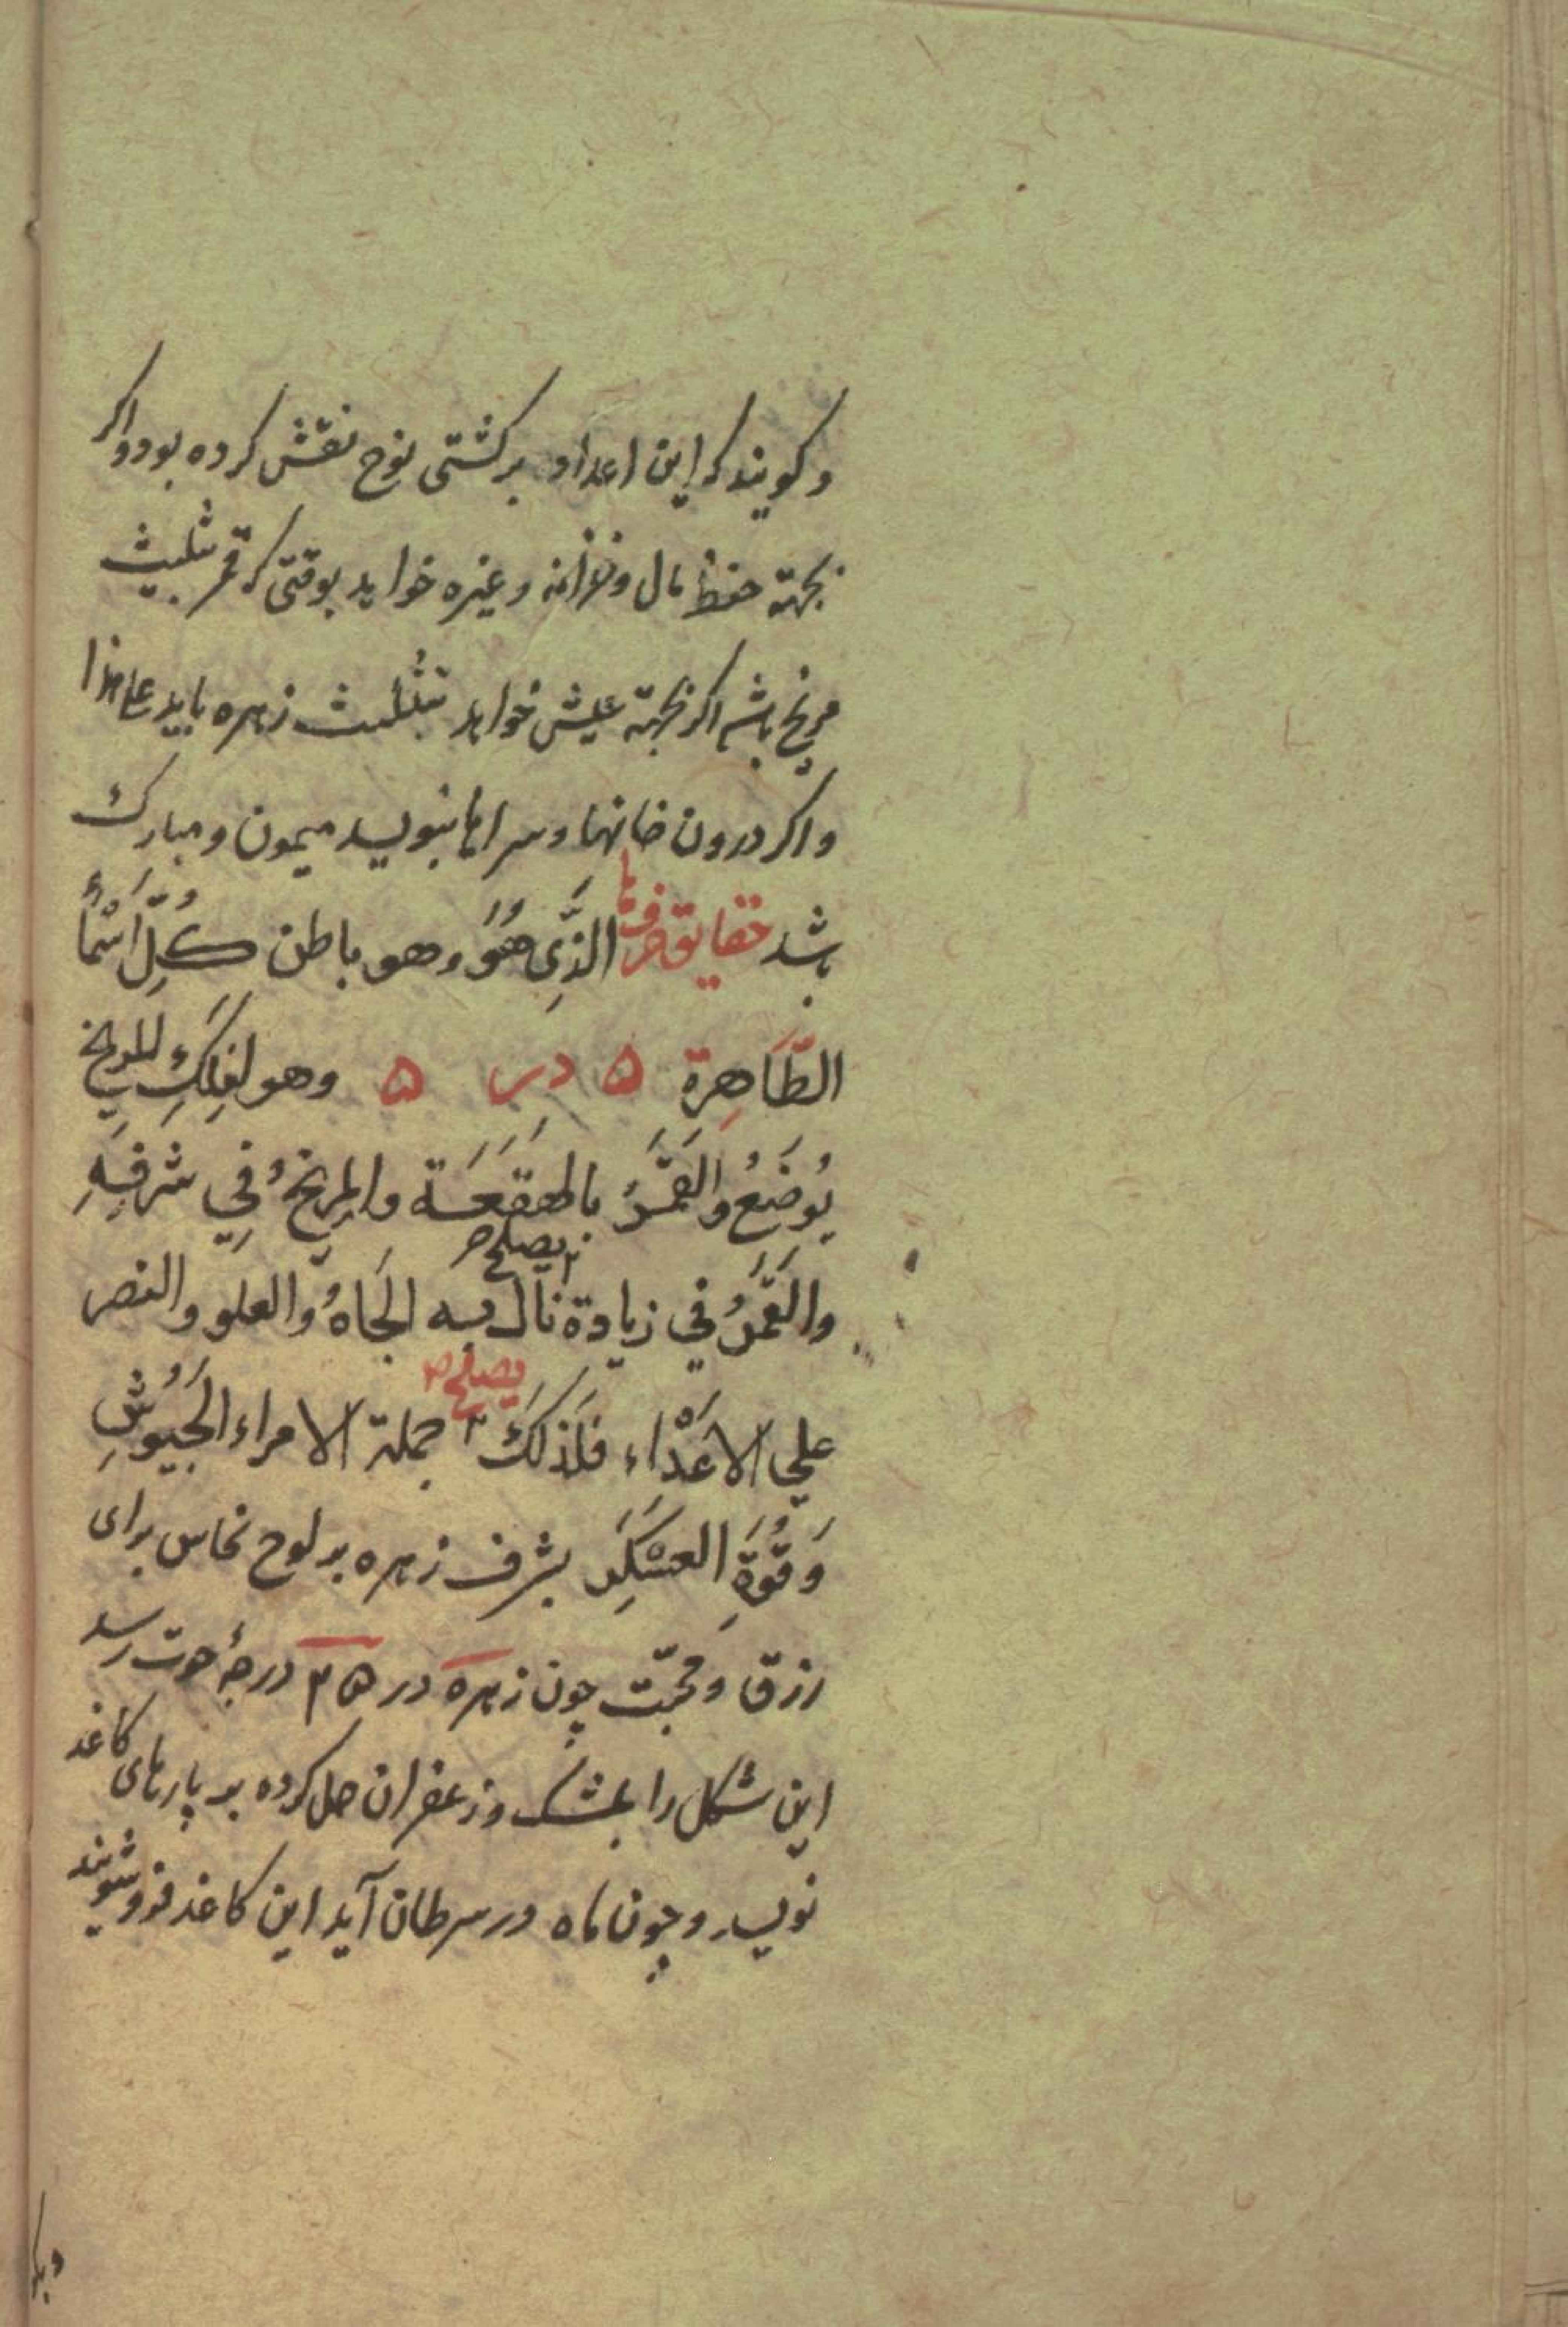 وکویند که این اعداد بر کشتی نوح نقش کرده بود واکر
بجهته حفظ مال وخزانه وغیره خواهد بوقتی که قمر بثلیث
مریخ باشد اکر بجهته عیش خواهد بتثلیث زهره باید علی هذا
واکر درون خانها وسراها بنویسد میمون ومبارک
باشد حقایق حرف ها الَّذِی هُوَ وهو باطن کُلِّ اَسْمَأ
الظَّاهِرة ۵ در ۵ وهو لفلَکِ المریخ
یُوضَعُ والقَمَرُ بالهقعَة والمریخُ فِي شرفِهِ
یصلح
والقَمَرُ في زیادة نال به الجَاهُ والعلو والنصر
یصلح
علي الاعْدَاء فلَذلکَ جملة الامراء الجَیُوشِ
وَقُوَّةِ العسْکَرِ بشرف زهره بر لوح نحاس برای
رزق ومحبّت چون زهره در درجهٔ حوت رسد
این شکل را بمشک وزعفران حل کرده بر پارهای کاغذ
نویسد وچون ماه در سرطان آید این کاغذ فروشویند